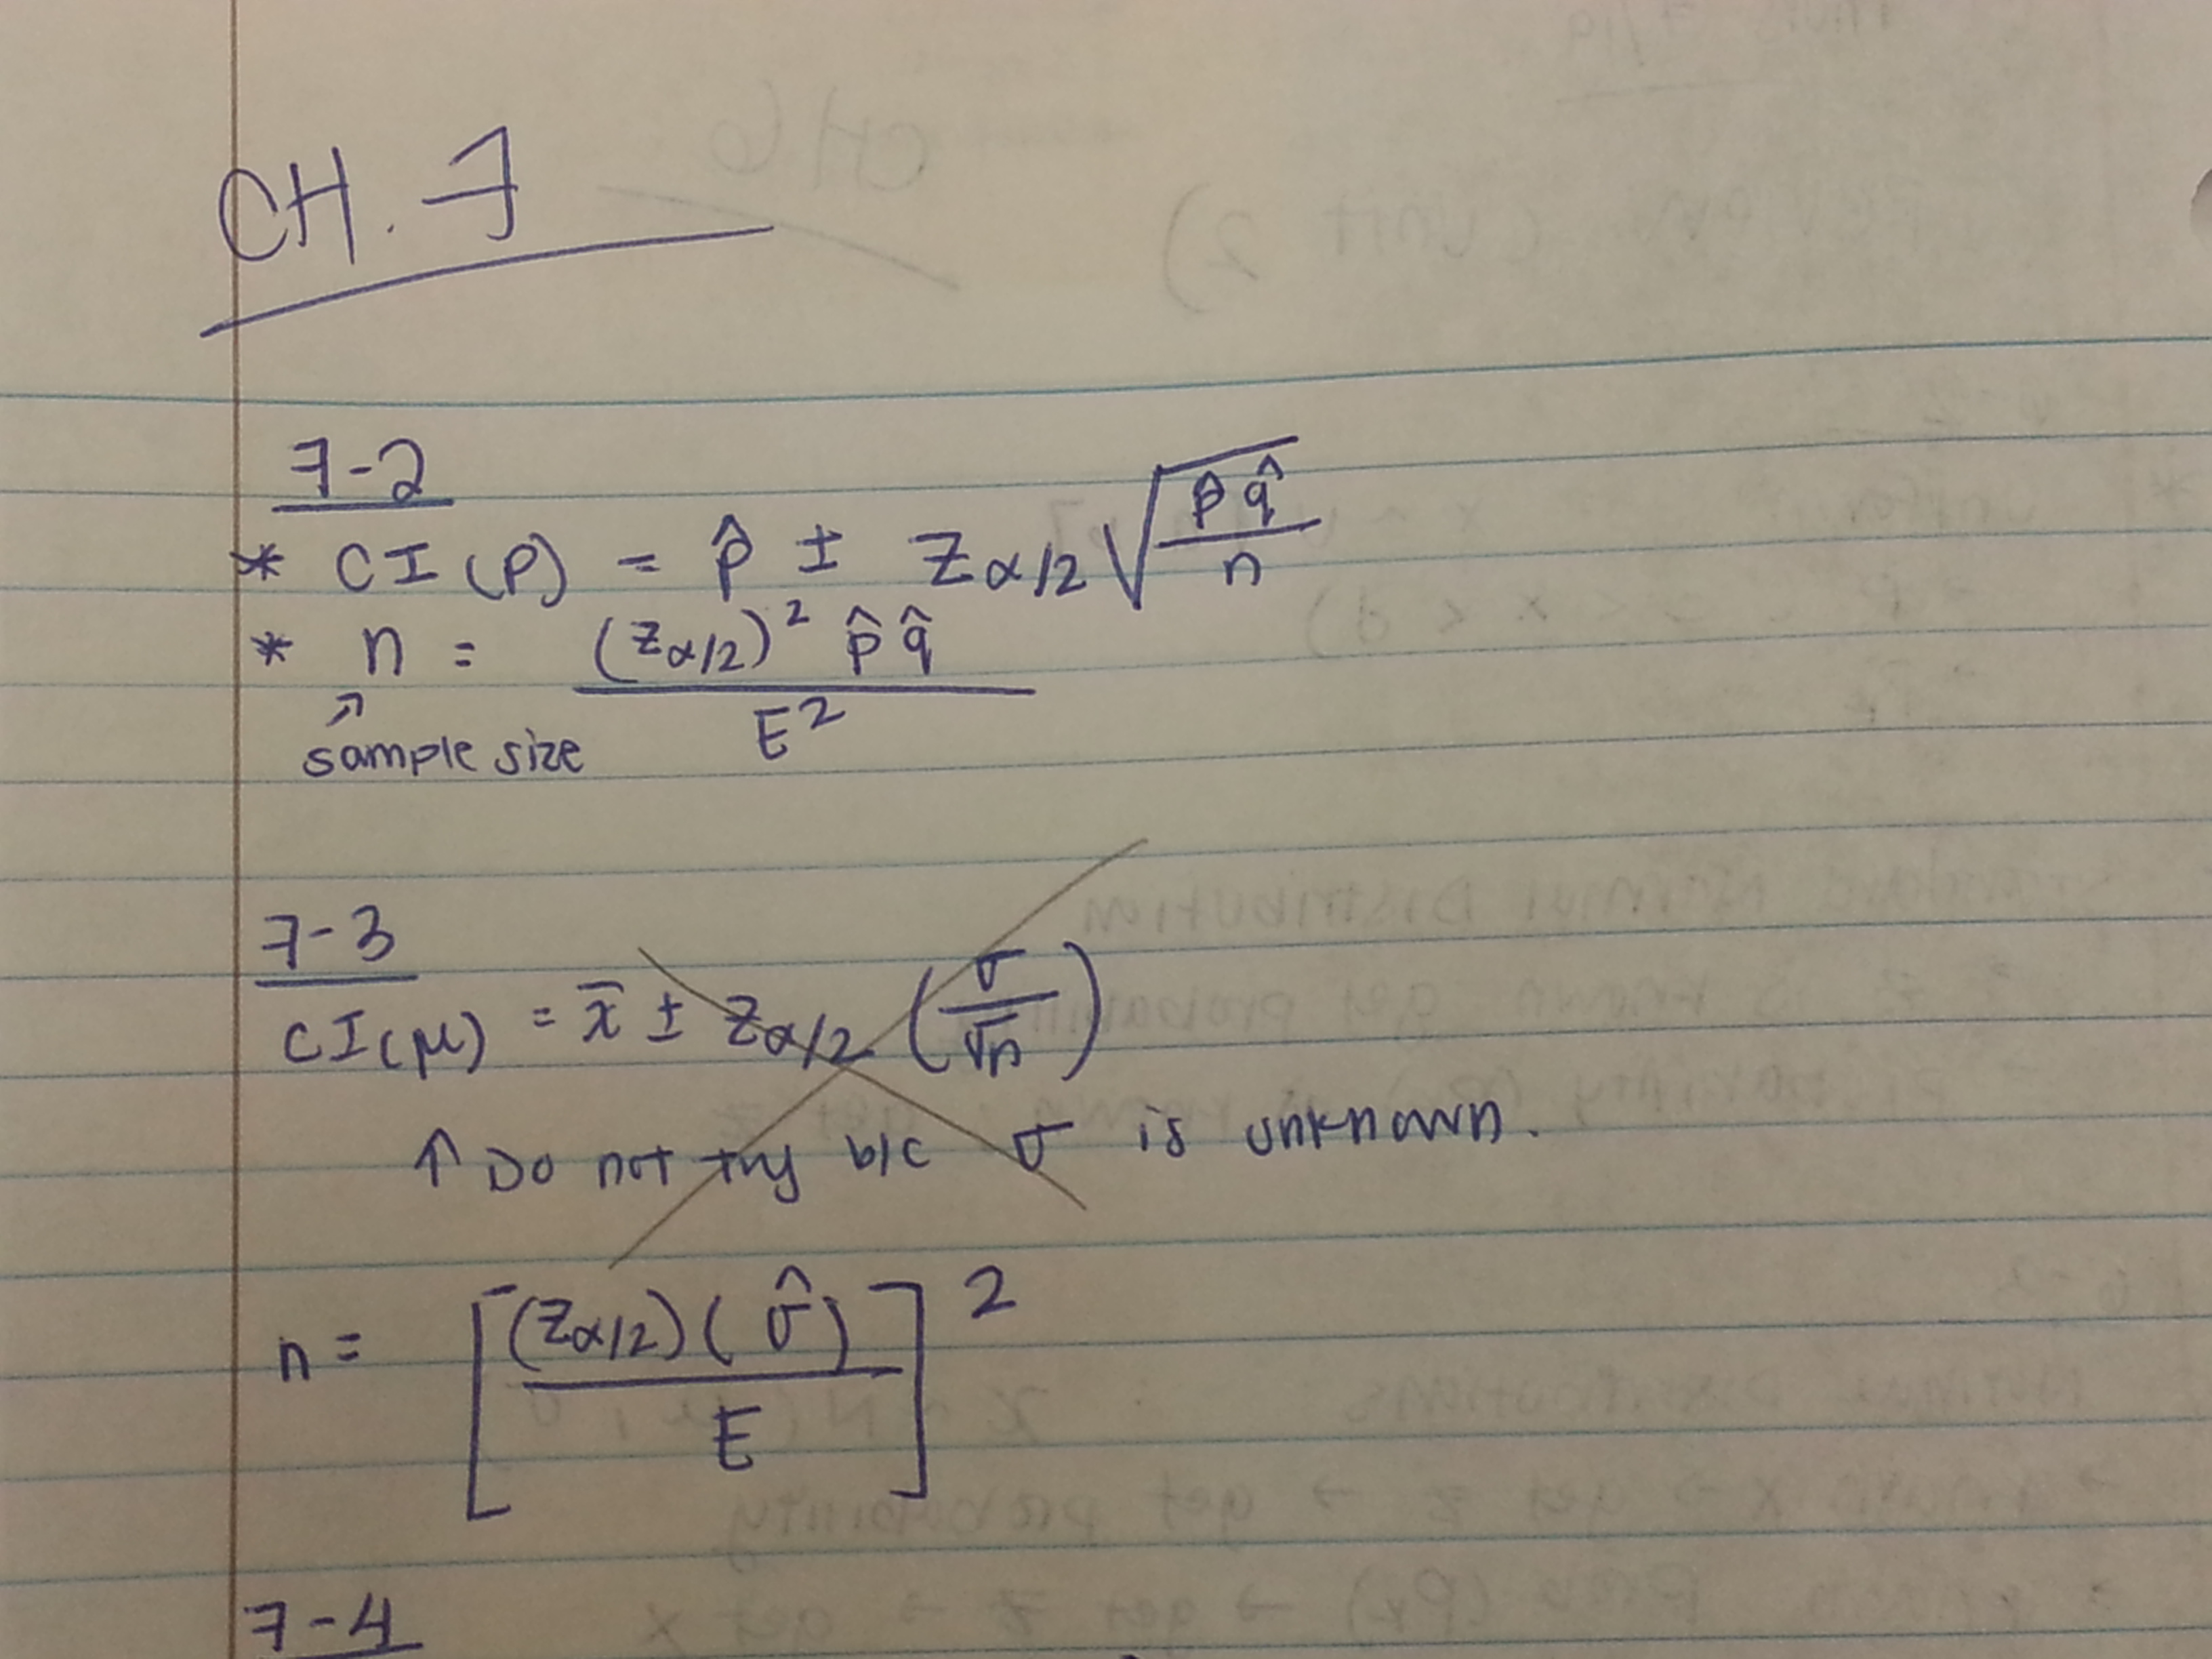 CH. 7
7-2
* CI(p) = p̂ ± Zα/2 √(p̂q̂/n)
* n = (Zα/2)² p̂q̂ / E²
↗
sample size
7-3
CI(μ) = x̄ ± Zα/2 (σ/√n)
↑ Do not try b/c σ is unknown.
n = [(Zα/2)(σ̂) / E]²
7-4